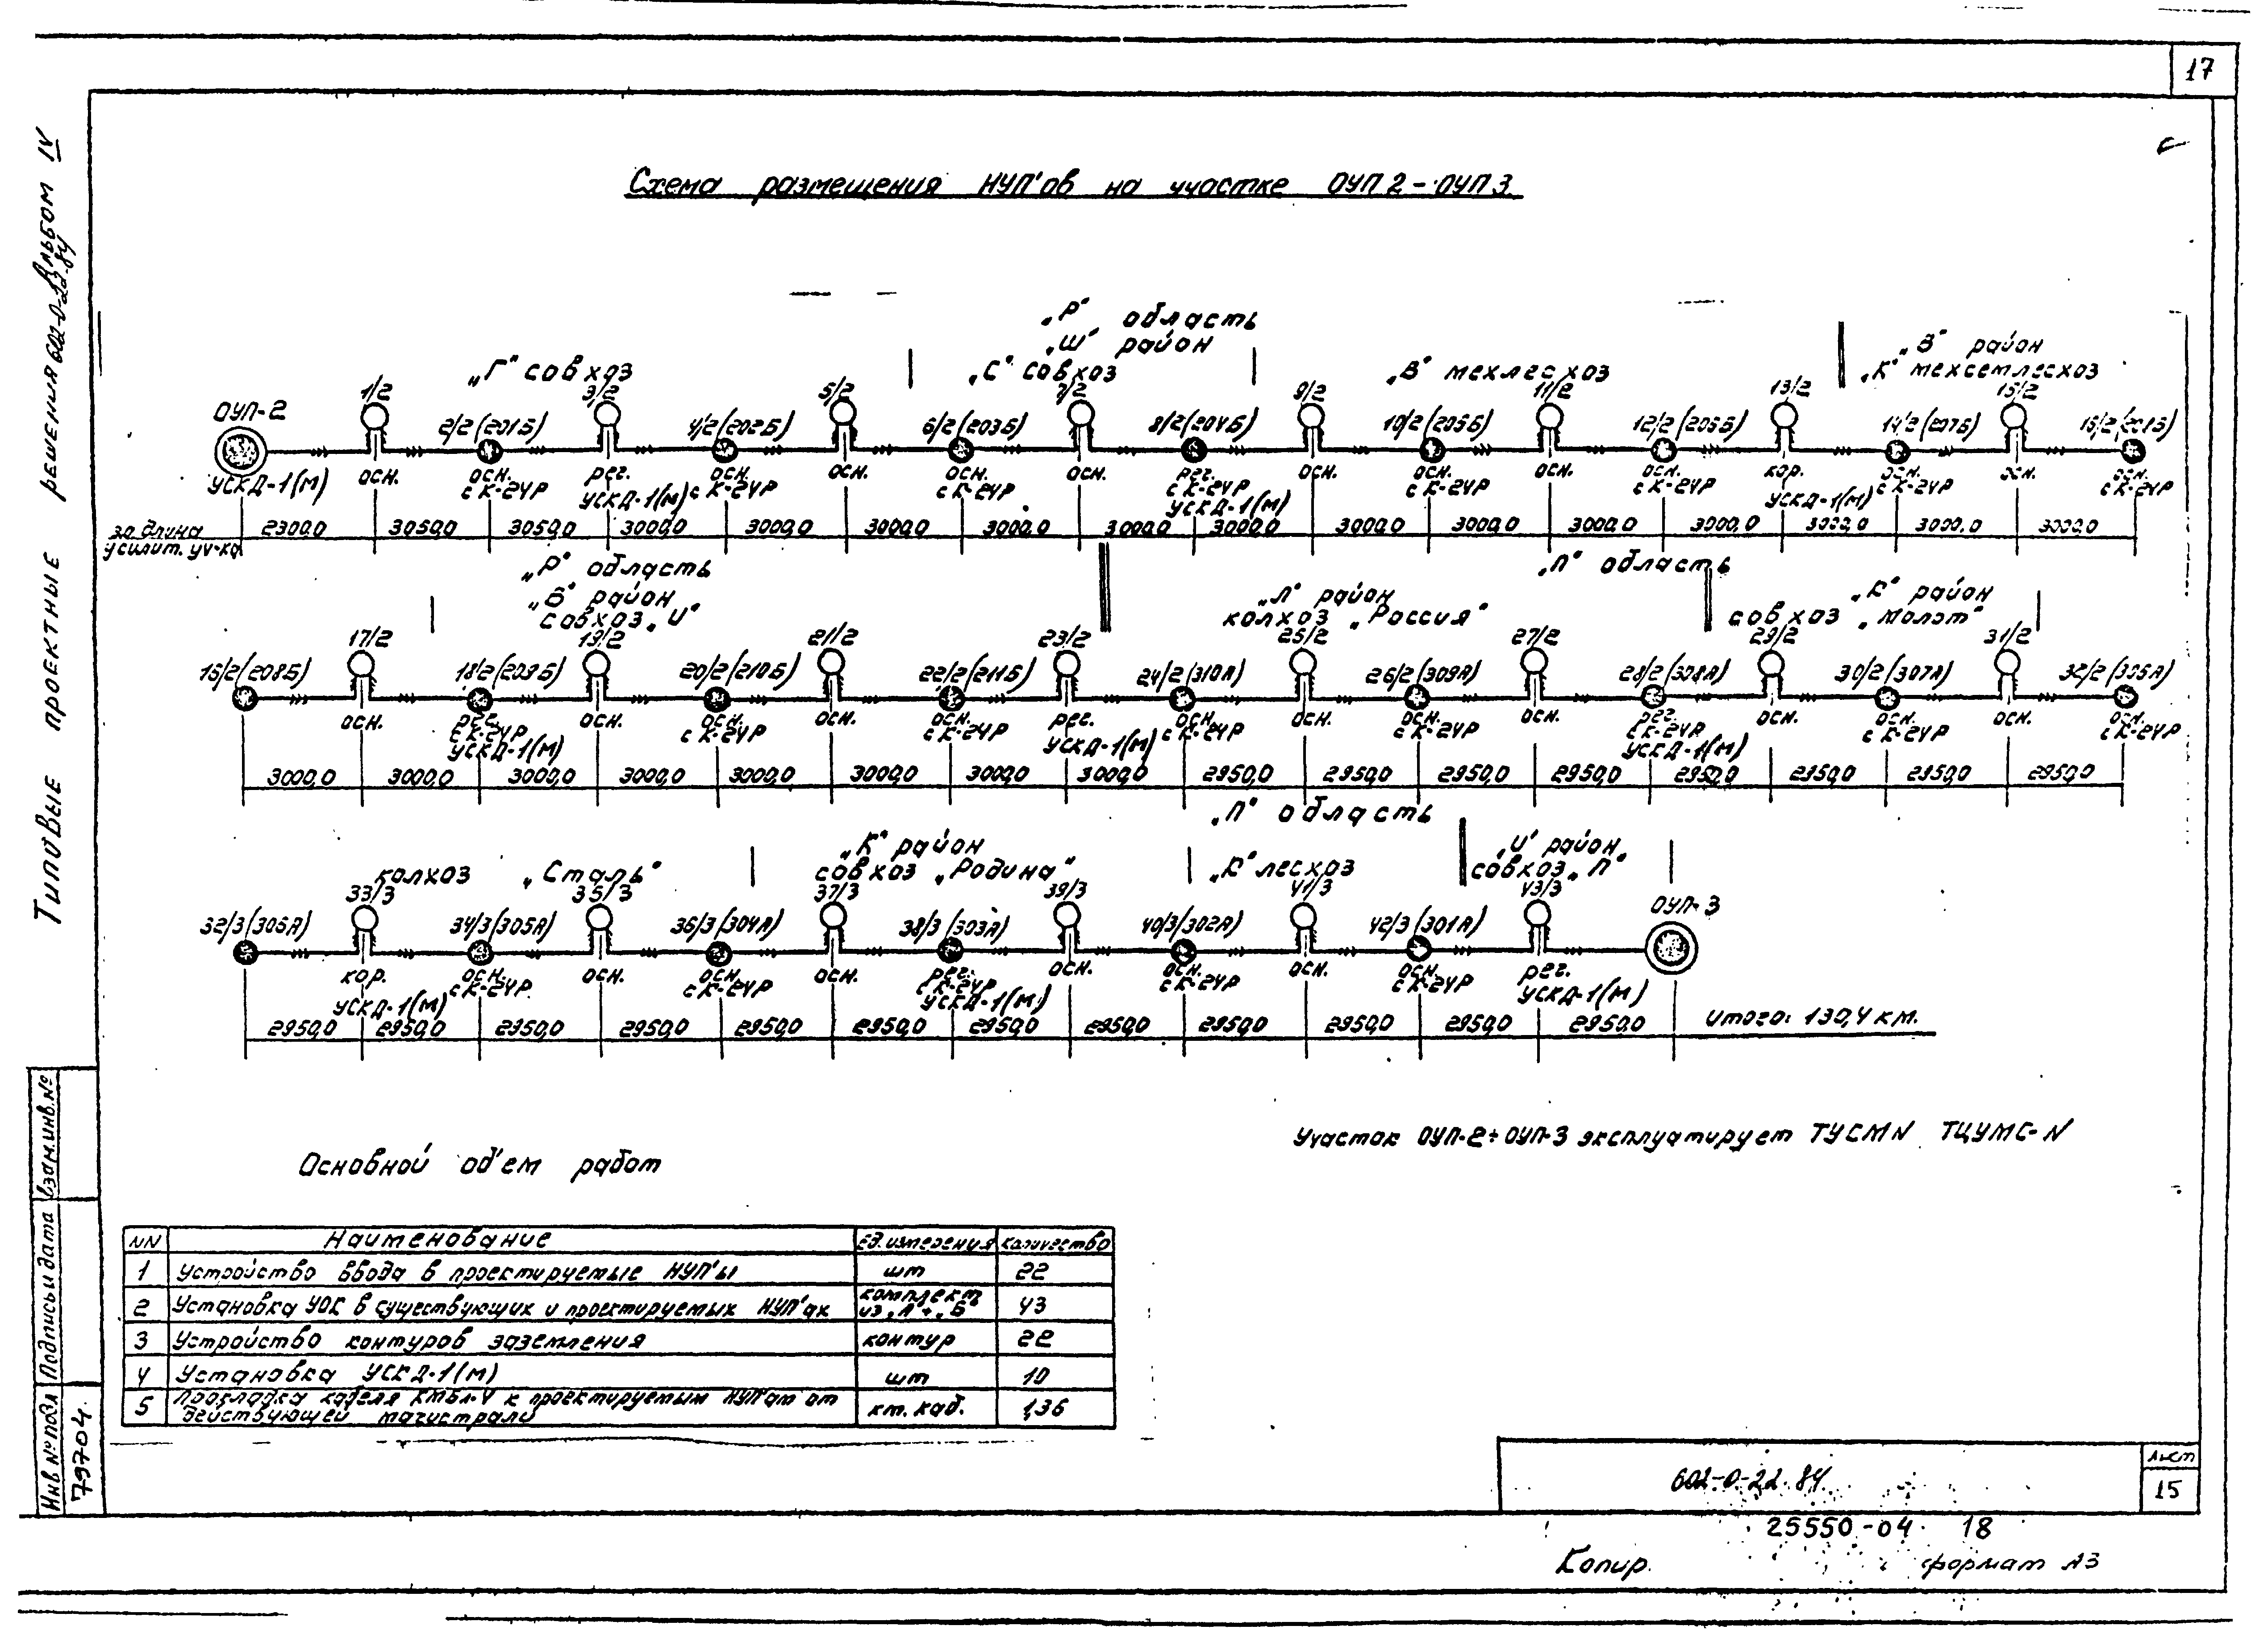 17
Схема размещения НУП'ов на участке ОУП2-ОУП3
Типовые проектные решения 602-0-22.84 Альбом IV
"Р" область
"Ш" район
"В" район
"Г" совхоз "С" совхоз "В" мехлесхоз "К" мехсемлесхоз
1/2 3/2 5/2 7/2 9/2 11/2 13/2 15/2
ОУП-2 2/2(201Б) 4/2(202Б) 6/2(203Б) 8/2(204Б) 10/2(205Б) 12/2(206Б) 14/2(207Б) 16/2(208Б)
УСКД-1(М) осн. осн. рег. осн. осн. осн. осн. рег. осн. осн. осн. осн. кор. осн. осн. осн.
с К-24Р с К-24Р с К-24Р с К-24Р с К-24Р с К-24Р с К-24Р с К-24Р
УСКД-1(М) УСКД-1(М) УСКД-1(М)
эл. длина 2300,0 3050,0 3050,0 3000,0 3000,0 3000,0 3000,0 3000,0 3000,0 3000,0 3000,0 3000,0 3000,0 3000,0 3000,0 3000,0
усилит. уч-ка
"Р" область "П" область
"В" район "Л" район "К" район
совхоз "И" колхоз "Россия" совхоз "Молот"
17/2 19/2 21/2 23/2 25/2 27/2 29/2 31/2
16/2(208Б) 18/2(209Б) 20/2(210Б) 22/2(211Б) 24/2(310А) 26/2(309А) 28/2(308А) 30/2(307А) 32/2(306А)
осн. рег. осн. осн. осн. осн. рег. осн. осн. осн. осн. рег. осн. осн. осн. осн.
с К-24Р с К-24Р с К-24Р с К-24Р с К-24Р с К-24Р с К-24Р с К-24Р
УСКД-1(М) УСКД-1(М) УСКД-1(М)
3000,0 3000,0 3000,0 3000,0 3000,0 3000,0 3000,0 3000,0 2950,0 2950,0 2950,0 2950,0 2950,0 2950,0 2950,0 2950,0
"П" область
"К" район "И" район
колхоз "Сталь" совхоз "Родина" "К" лесхоз совхоз "П"
33/3 35/3 37/3 39/3 41/3 43/3
32/3(306А) 34/3(305А) 36/3(304А) 38/3(303А) 40/3(302А) 42/3(301А) ОУП-3
кор. осн. осн. осн. осн. рег. осн. осн. осн. осн. рег.
с К-24Р с К-24Р с К-24Р с К-24Р с К-24Р
УСКД-1(М) УСКД-1(М) УСКД-1(М)
2950,0 2950,0 2950,0 2950,0 2950,0 2950,0 2950,0 2950,0 2950,0 2950,0 2950,0 2950,0 Итого: 130,4 км.
Участок ОУП-2÷ОУП-3 эксплуатирует ТУСМN ТЦУМС-N
Основной об'ем работ
NN Наименование Ед. измерения Количество
1 Устройство ввода в проектируемые НУП'ы шт 22
2 Установка УОК в существующих и проектируемых НУП'ах комплект из "А"+"Б" 43
3 Устройство контуров заземления контур 22
4 Установка УСКД-1(М) шт 10
5 Прокладка кабеля КМБл-4 к проектируемым НУП'ам от
действующей магистрали км. каб. 1,36
Взам.инв.№
Подпись и дата
Инв № подл
79704.
602-0-22.84
Лист
15
25550-04 18
Копир. формат А3